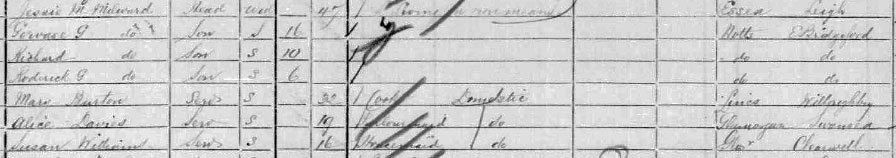 Jessie M Milward Head Wid 47 Living on own means Essex Leigh
Gervase G do Son S 16 Notts E Bridgford
Richard do Son S 10 do do
Roderick G do Son S 6 do do
Mary Burton Serv S 32 Cook Domestic Lincs Willoughby
Alice Davies Serv S 19 Housemaid do Glamorgan Swansea
Susan Williams Serv S 16 Housemaid do Glos Clearwell